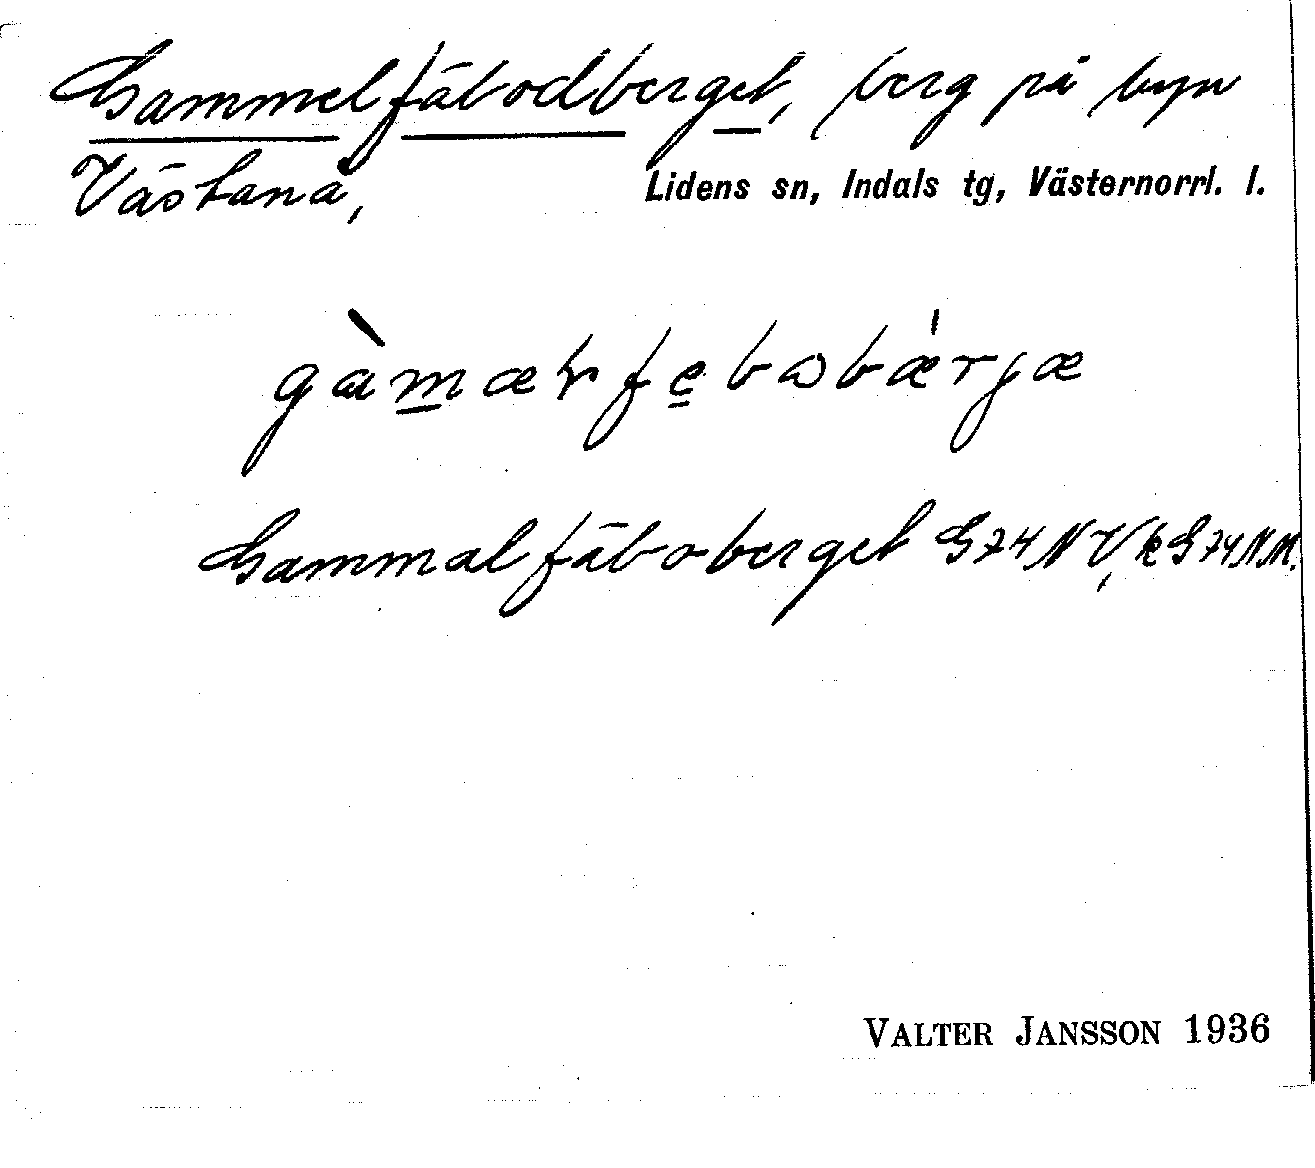 Gammelfäbodberget, berg på byn
Västanå, Lidens sn, Indals tg, Västernorrl. l.
gàmæłfębωbæ'rjæ
Gammalfäboberget G74NV, k G74NM.
VALTER JANSSON 1936